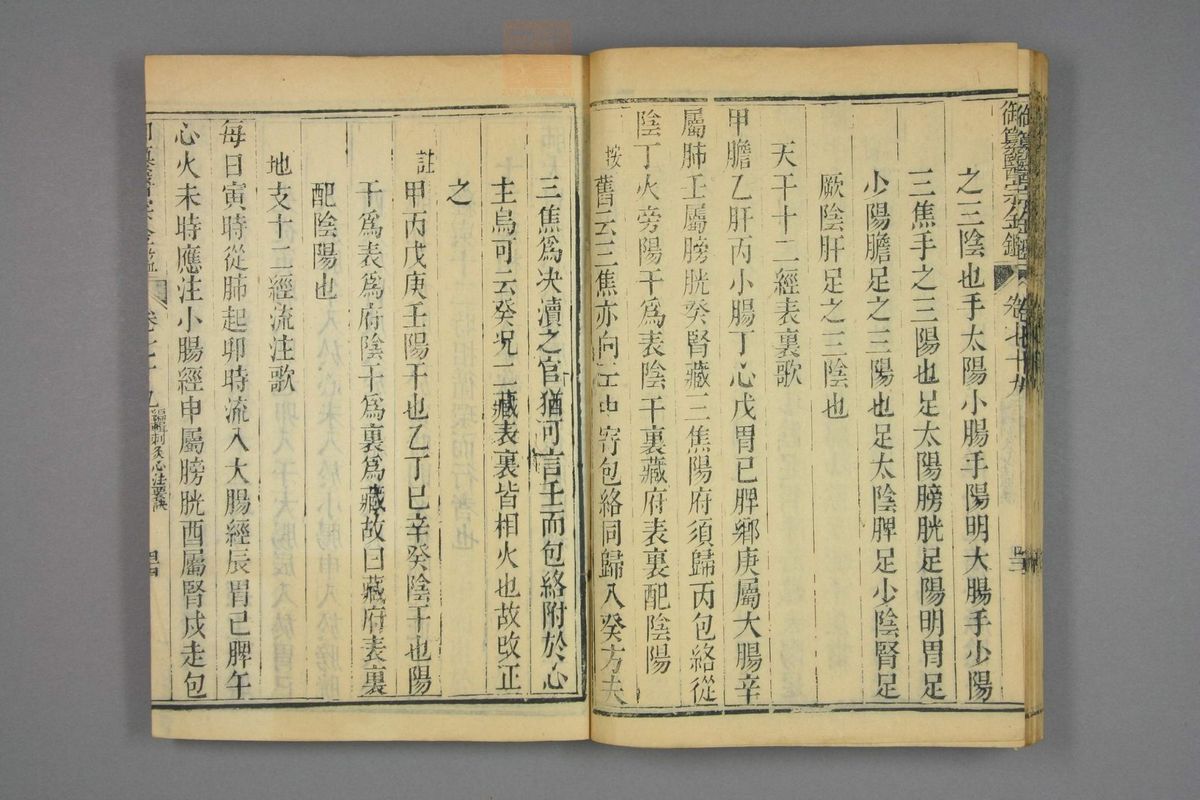 御纂醫宗金鑑 卷七十九
之三陰也手太陽小腸手陽明大腸手少陽
三焦手之三陽也足太陽膀胱足陽明胃足
少陽膽足之三陽也足太陰脾足少陰腎足
厥陰肝足之三陰也
天干十二經表裏歌
甲膽乙肝丙小腸丁心戊胃己脾鄉庚屬大腸辛
屬肺壬屬膀胱癸腎藏三焦陽府須歸丙包絡從
陰丁火旁陽干爲表陰干裏藏府表裏配陰陽
按舊云三焦亦向壬中寄包絡同歸入癸方夫
三焦爲决瀆之官猶可言壬而包絡附於心
主烏可云癸况二藏表裏皆相火也故改正
之
註甲丙戊庚壬陽干也乙丁己辛癸陰干也陽
干爲表爲府陰干爲裏爲藏故曰藏府表裏
配陰陽也
地支十二經流注歌
每日寅時從肺起卯時流入大腸經辰胃巳脾午
心火未時應注小腸經申屬膀胱酉屬腎戌走包
卷七十九 編輯刺灸心法要訣 四